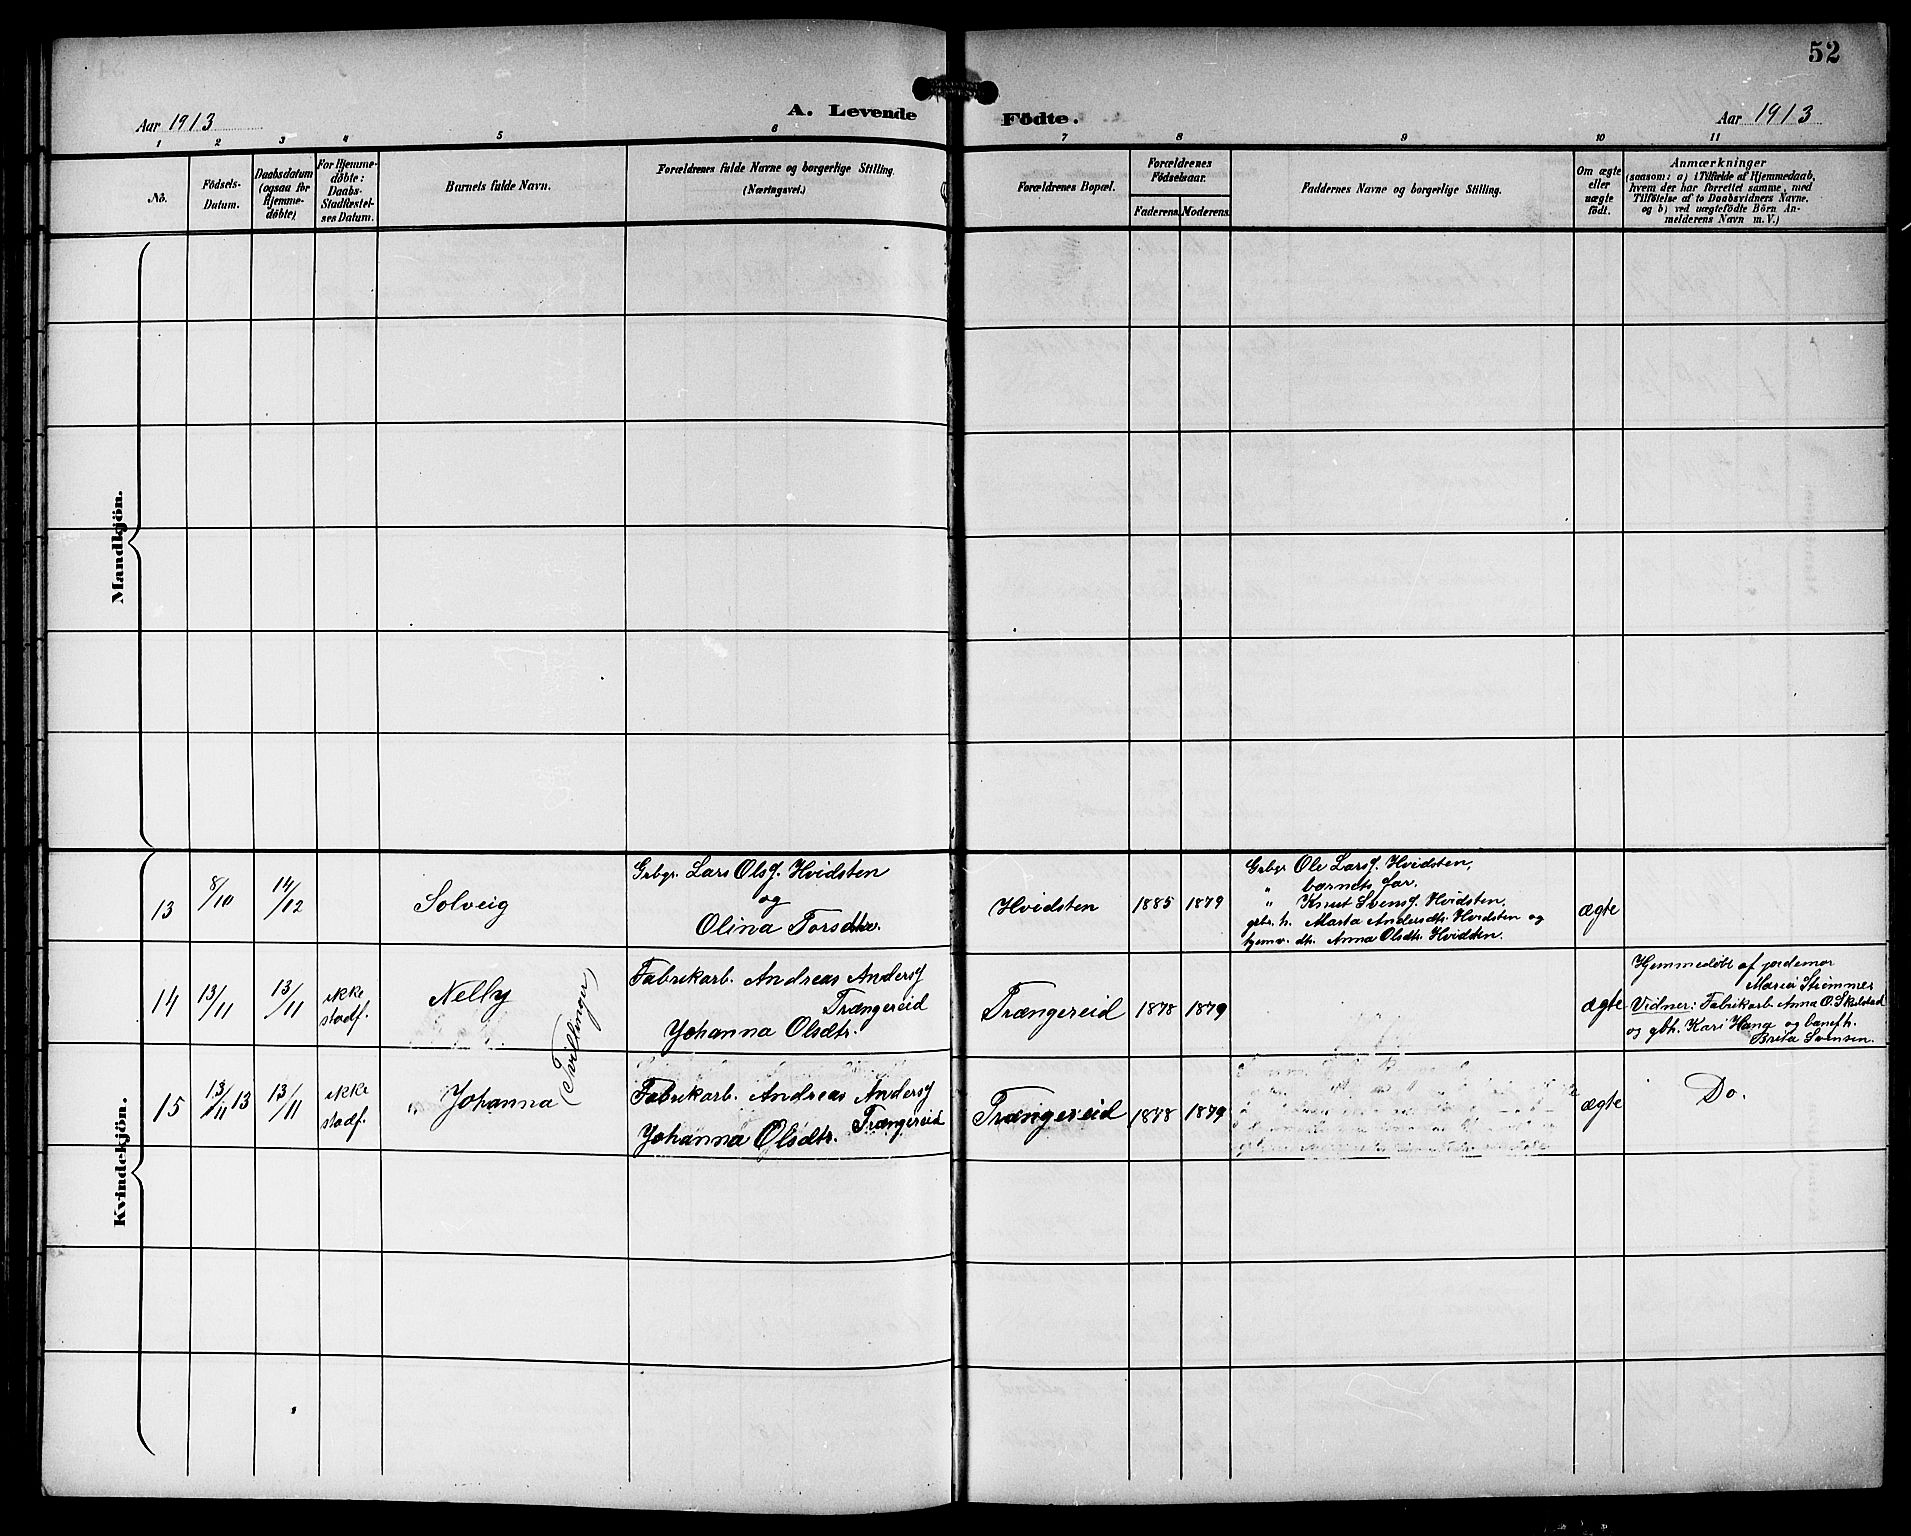 52
Aar 1913
A. Levende Födte.
Aar 1913
1 2 3 4 5 6 7 8 9 10 11
No.
Födsels-
Datum.
Daabsdatum
(ogsaa for
Hjemme-
döbte)
For Hjemme-
döbte:
Daabs-
Stadfæstel-
ses Datum.
Barnets fulde Navn.
Forældrenes fulde Navne og borgerlige Stilling.
(Næringsvei.)
Forældrenes Bopæl.
Forældrenes
Födselsaar.
Faderens. Moderens.
Faddernes Navne og borgerlige Stilling.
Om ægte
eller
uægte
födt.
Anmærkninger
(saasom: a) i Tilfælde af Hjemmedaab,
hvem der har forrettet samme, med
Tilföielse af to Daabsvidners Navne,
og b) ved uægtefödte Börn An-
melderens Navn m. V.)
Mandkjön.
Kvindekjön.
13
8/10
14/12
Solveig
Grbgr. Lars Olsf. Hvidsten
og
Olina Torsdtr.
Hvidsten
1885
1879
Grbgr Ole Larsf. Hvidsten,
" barnets far.
" Knut Svensf. Hvidsten,
gbr. h. Marta Andersdtr. Hvidsten og
hjemv. dtr. Anna Olsdtr. Hvidsten.
ægte
14
13/11
13/11
ikke
stadf.
Nelly
(Tvillinger)
Fabrikarb. Andreas Andersf
Trængereid
Johanna Olsdtr.
Trængereid
1878
1879
ægte
Hjemmedöbt af jordemor
Maria Stemmer
Vidner: Fabrikarb. Anna O. Skulstad
og gbh. Kari Haug og banefh.
Brita Svensen.
15
13/11 13
13/11
ikke
stadf.
Johanna
Fabrikarb. Andreas Andersf
Trængereid
Johanna Olsdtr.
Trængereid
1878
1879
ægte
Do.